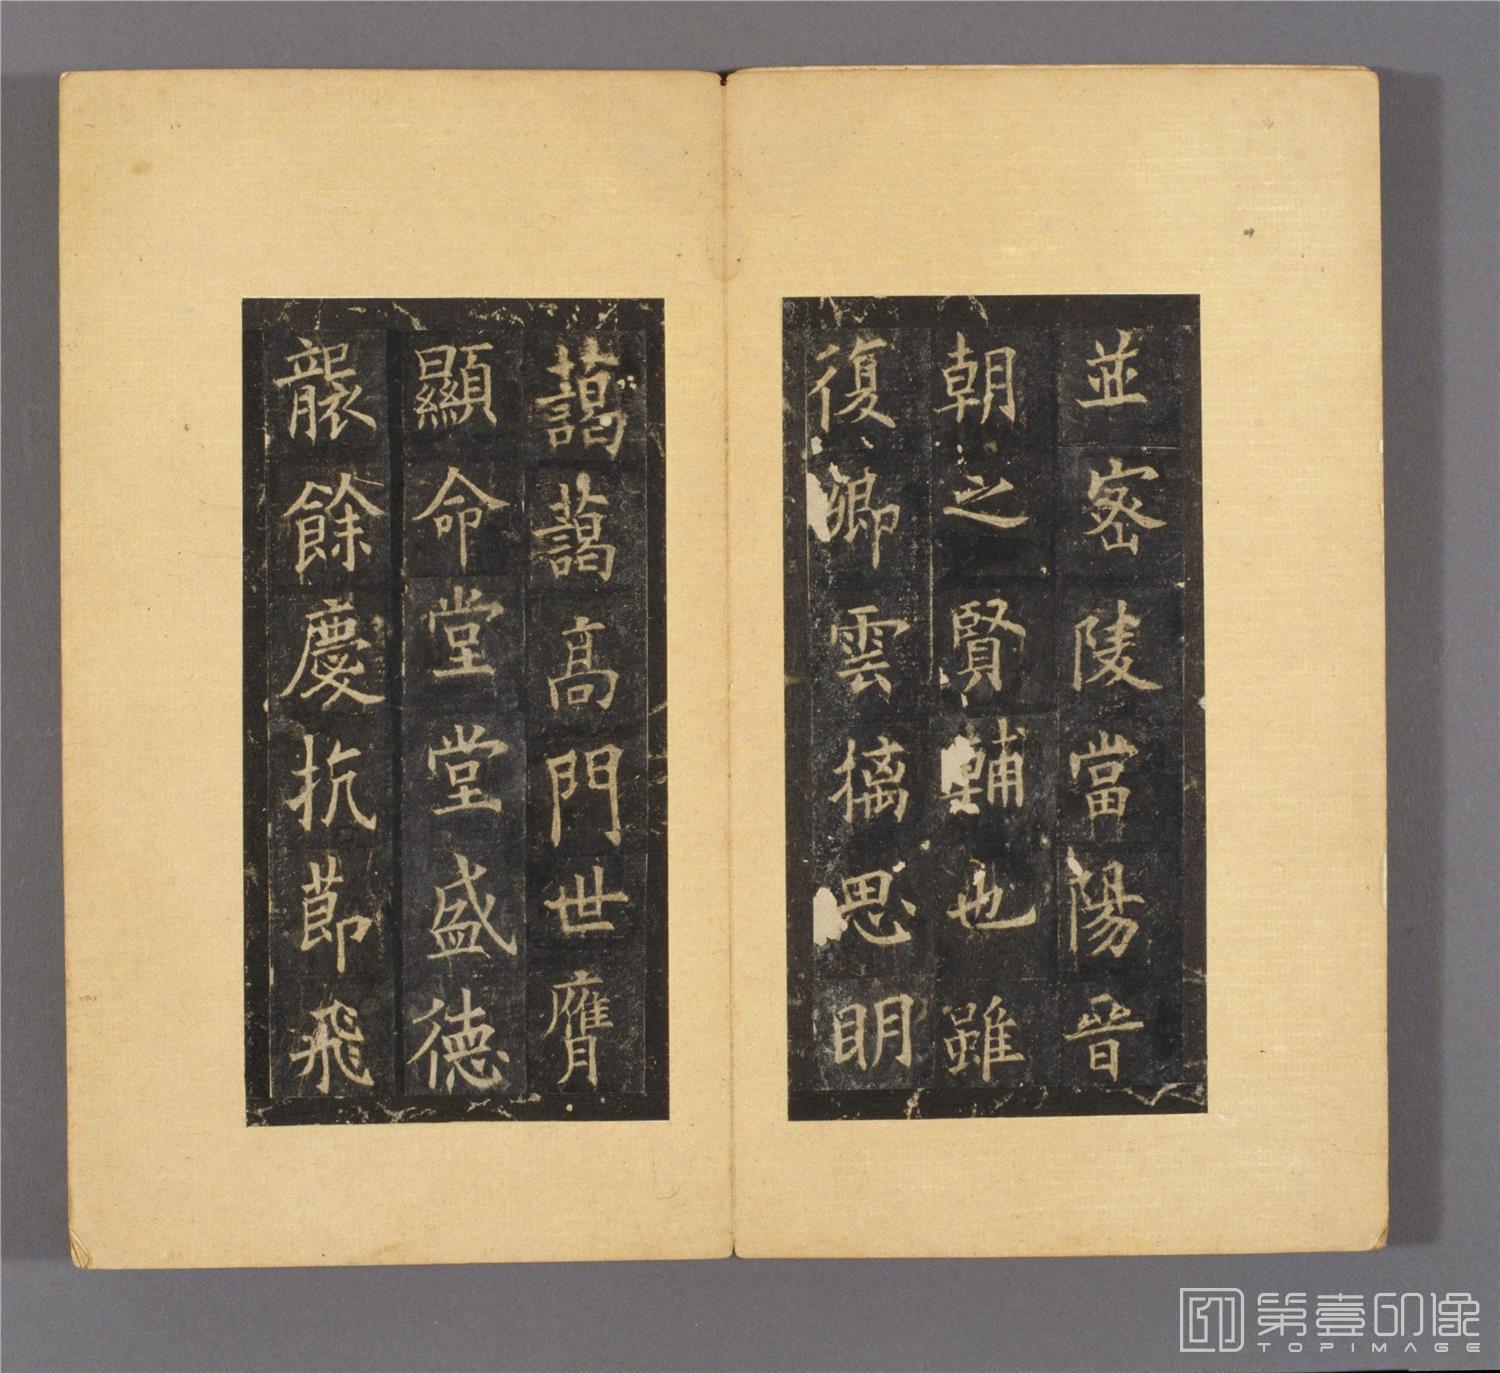 並密陵當陽晉
朝之賢輔也雖
復卿雲摛思明
藹藹高門世膺
顯命堂堂盛德
襲餘慶抗節飛
第壹印像
TOPIMAGE